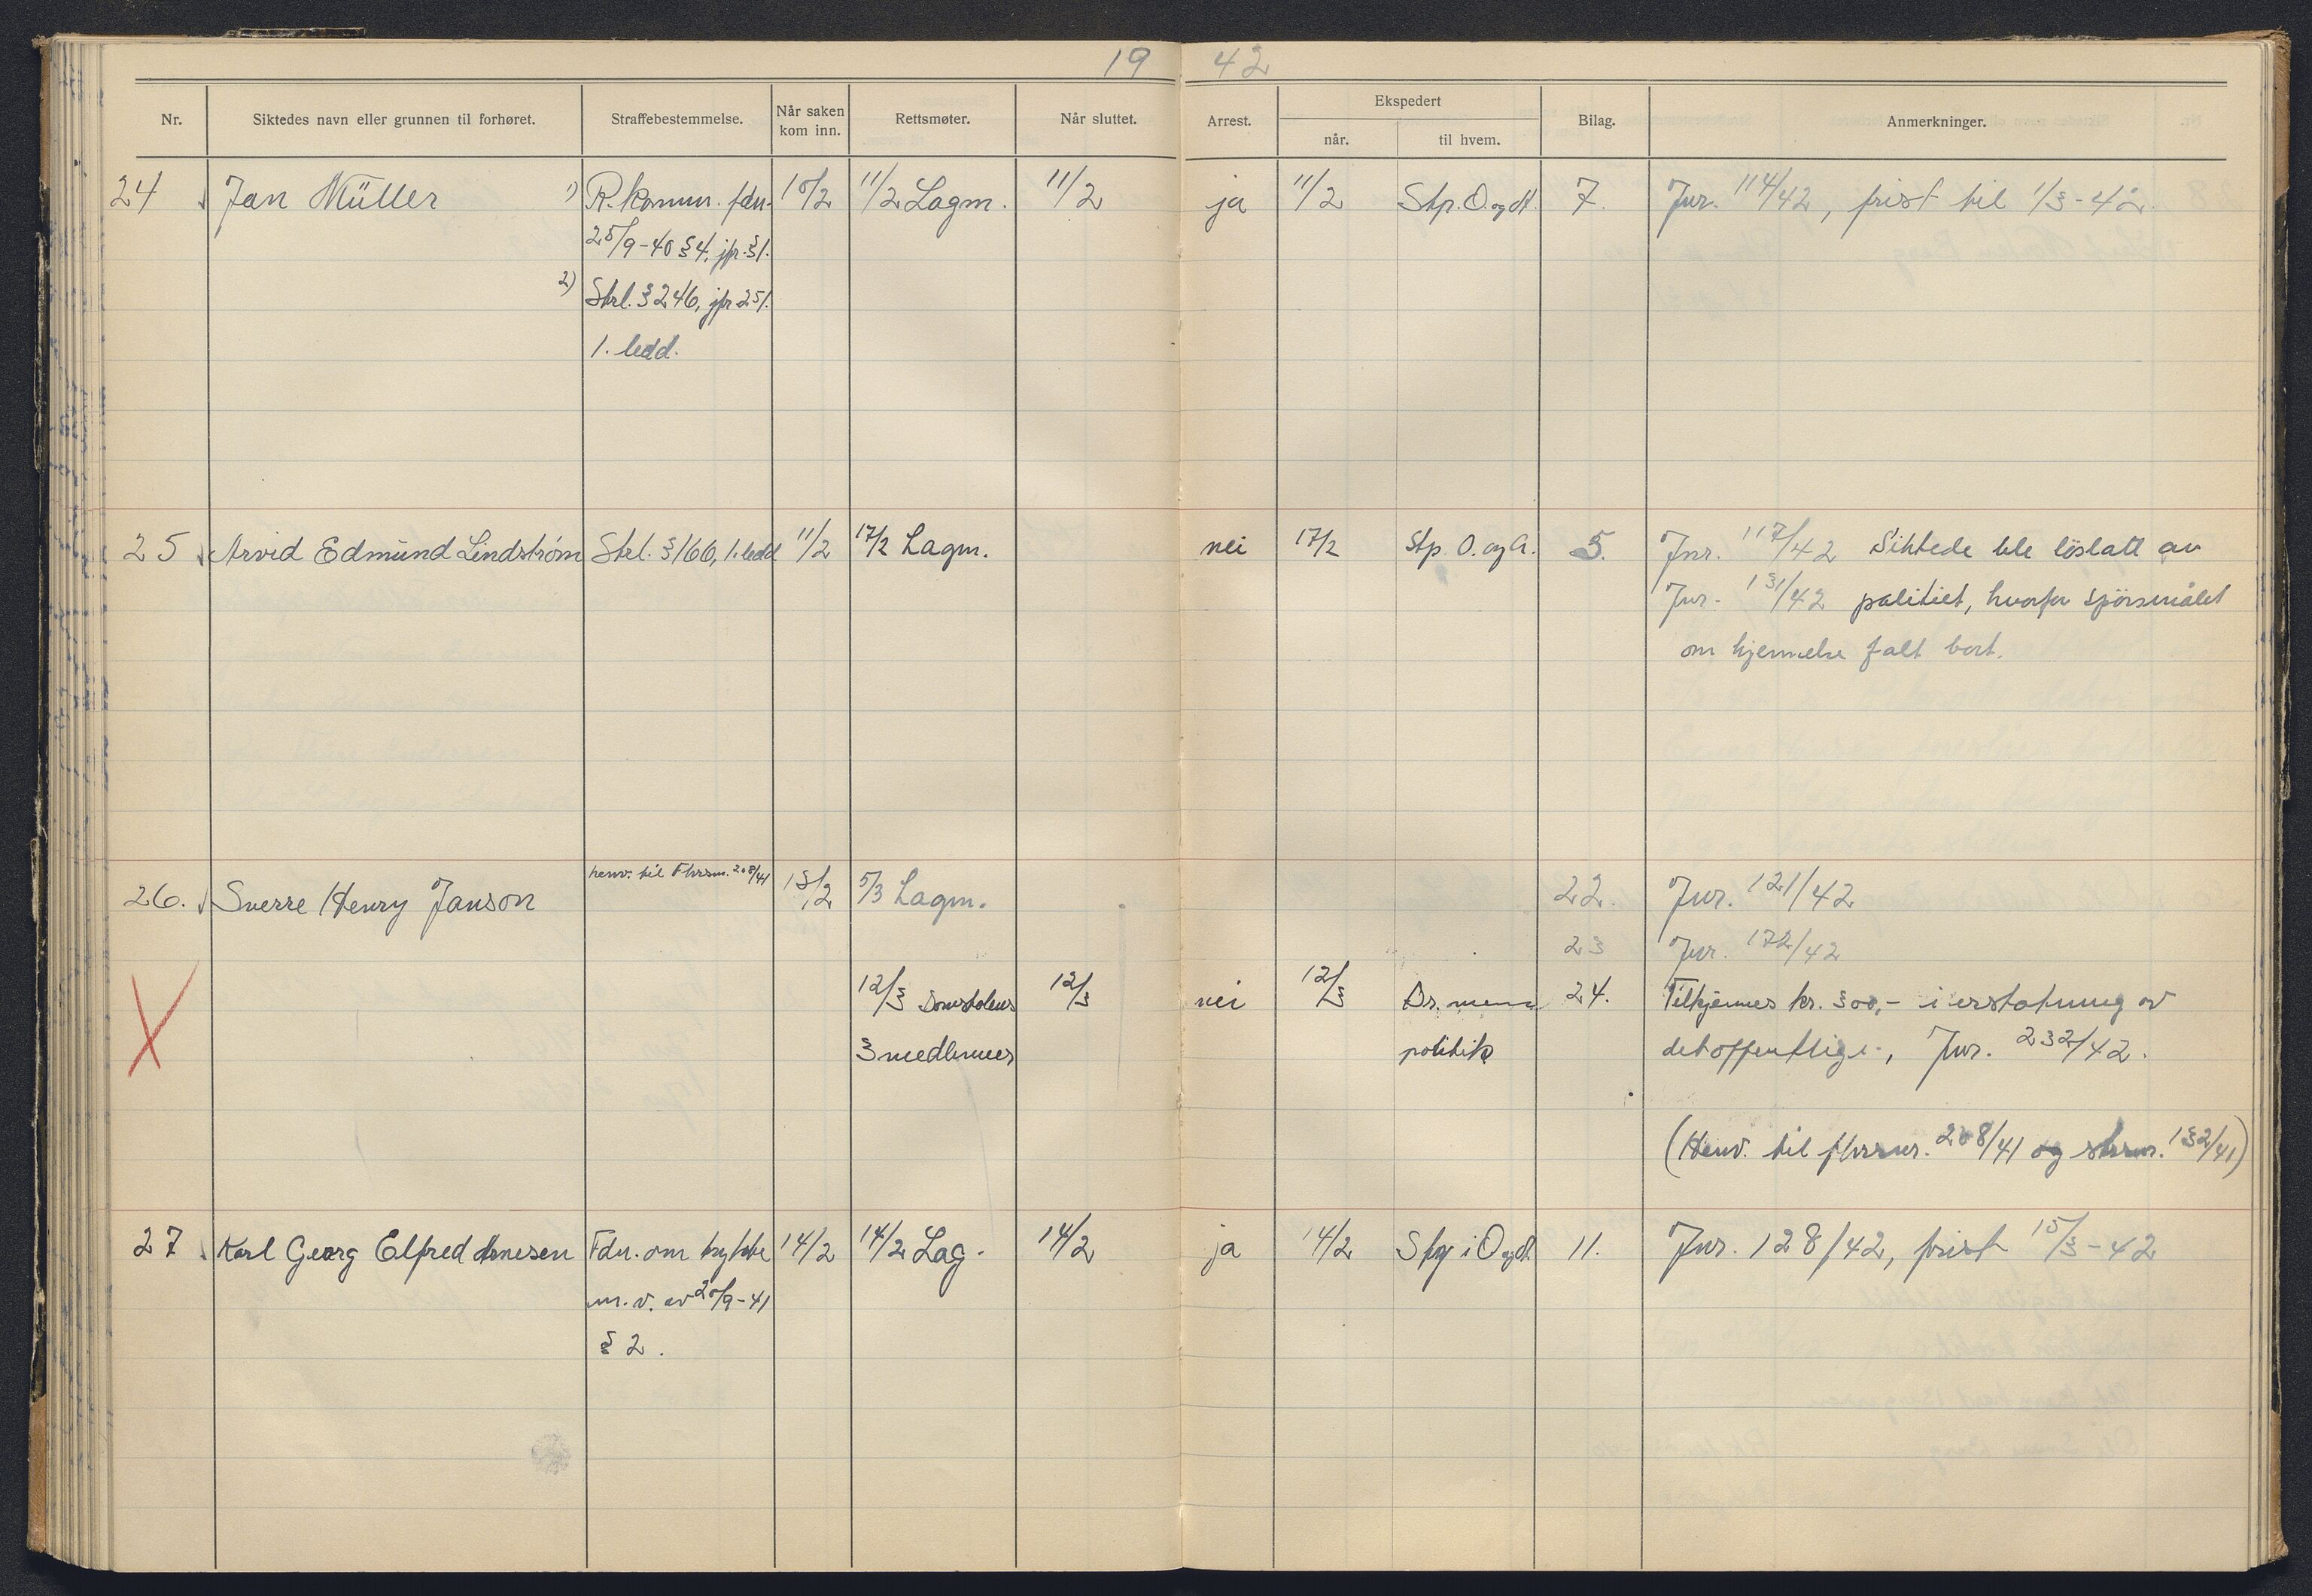 19 42
Nr. Siktedes navn eller grunnen til forhøret. Straffebestemmelse. Når saken kom inn. Rettsmøter. Når sluttet. Arrest. Ekspedert når. til hvem. Bilag. Anmerkninger.
24 Jan Müller 1) R.komm. fdn. 10/2 11/2 Lagm. 11/2 ja 11/2 Stp. O. og A. 7. Jnr. 114/42, frist til 1/3-42.
25/9-40 § 4, jfr. § 1.
2) Strl. § 246, jfr 251.
1. ledd.
25 Arvid Edmund Lindstrøm Strl. § 166, 1. ledd 11/2 17/2 Lagm. nei 17/2 Stp. O. og A. 5. Jnr. 117/42 Siktede ble löslatt av
Jnr. 131/42 politiet, hvorfor spörsmålet
om kjennelse falt bort.
26. Sverre Henry Janson henv. til Fhrsnr. 208/41 13/2 5/3 Lagm. 22. Jnr. 121/42
23 Jnr. 172/42
12/3 Domstolens 12/3 nei 12/3 24. Tilkjennes kr. 300,- i erstatning av
3 medlemmer politik det offentlige, Jnr. 232/42.
(Henv. til fhrsnr. 208/41 og strsnr. 132/41)
27 Karl Georg Elfred Arnesen Fdn. om trykke 14/2 14/2 Lag. 14/2 ja 14/2 Stp i O og A 11. Jnr. 128/42, frist 15/3-42
m. v. av 20/9-41
§ 2.